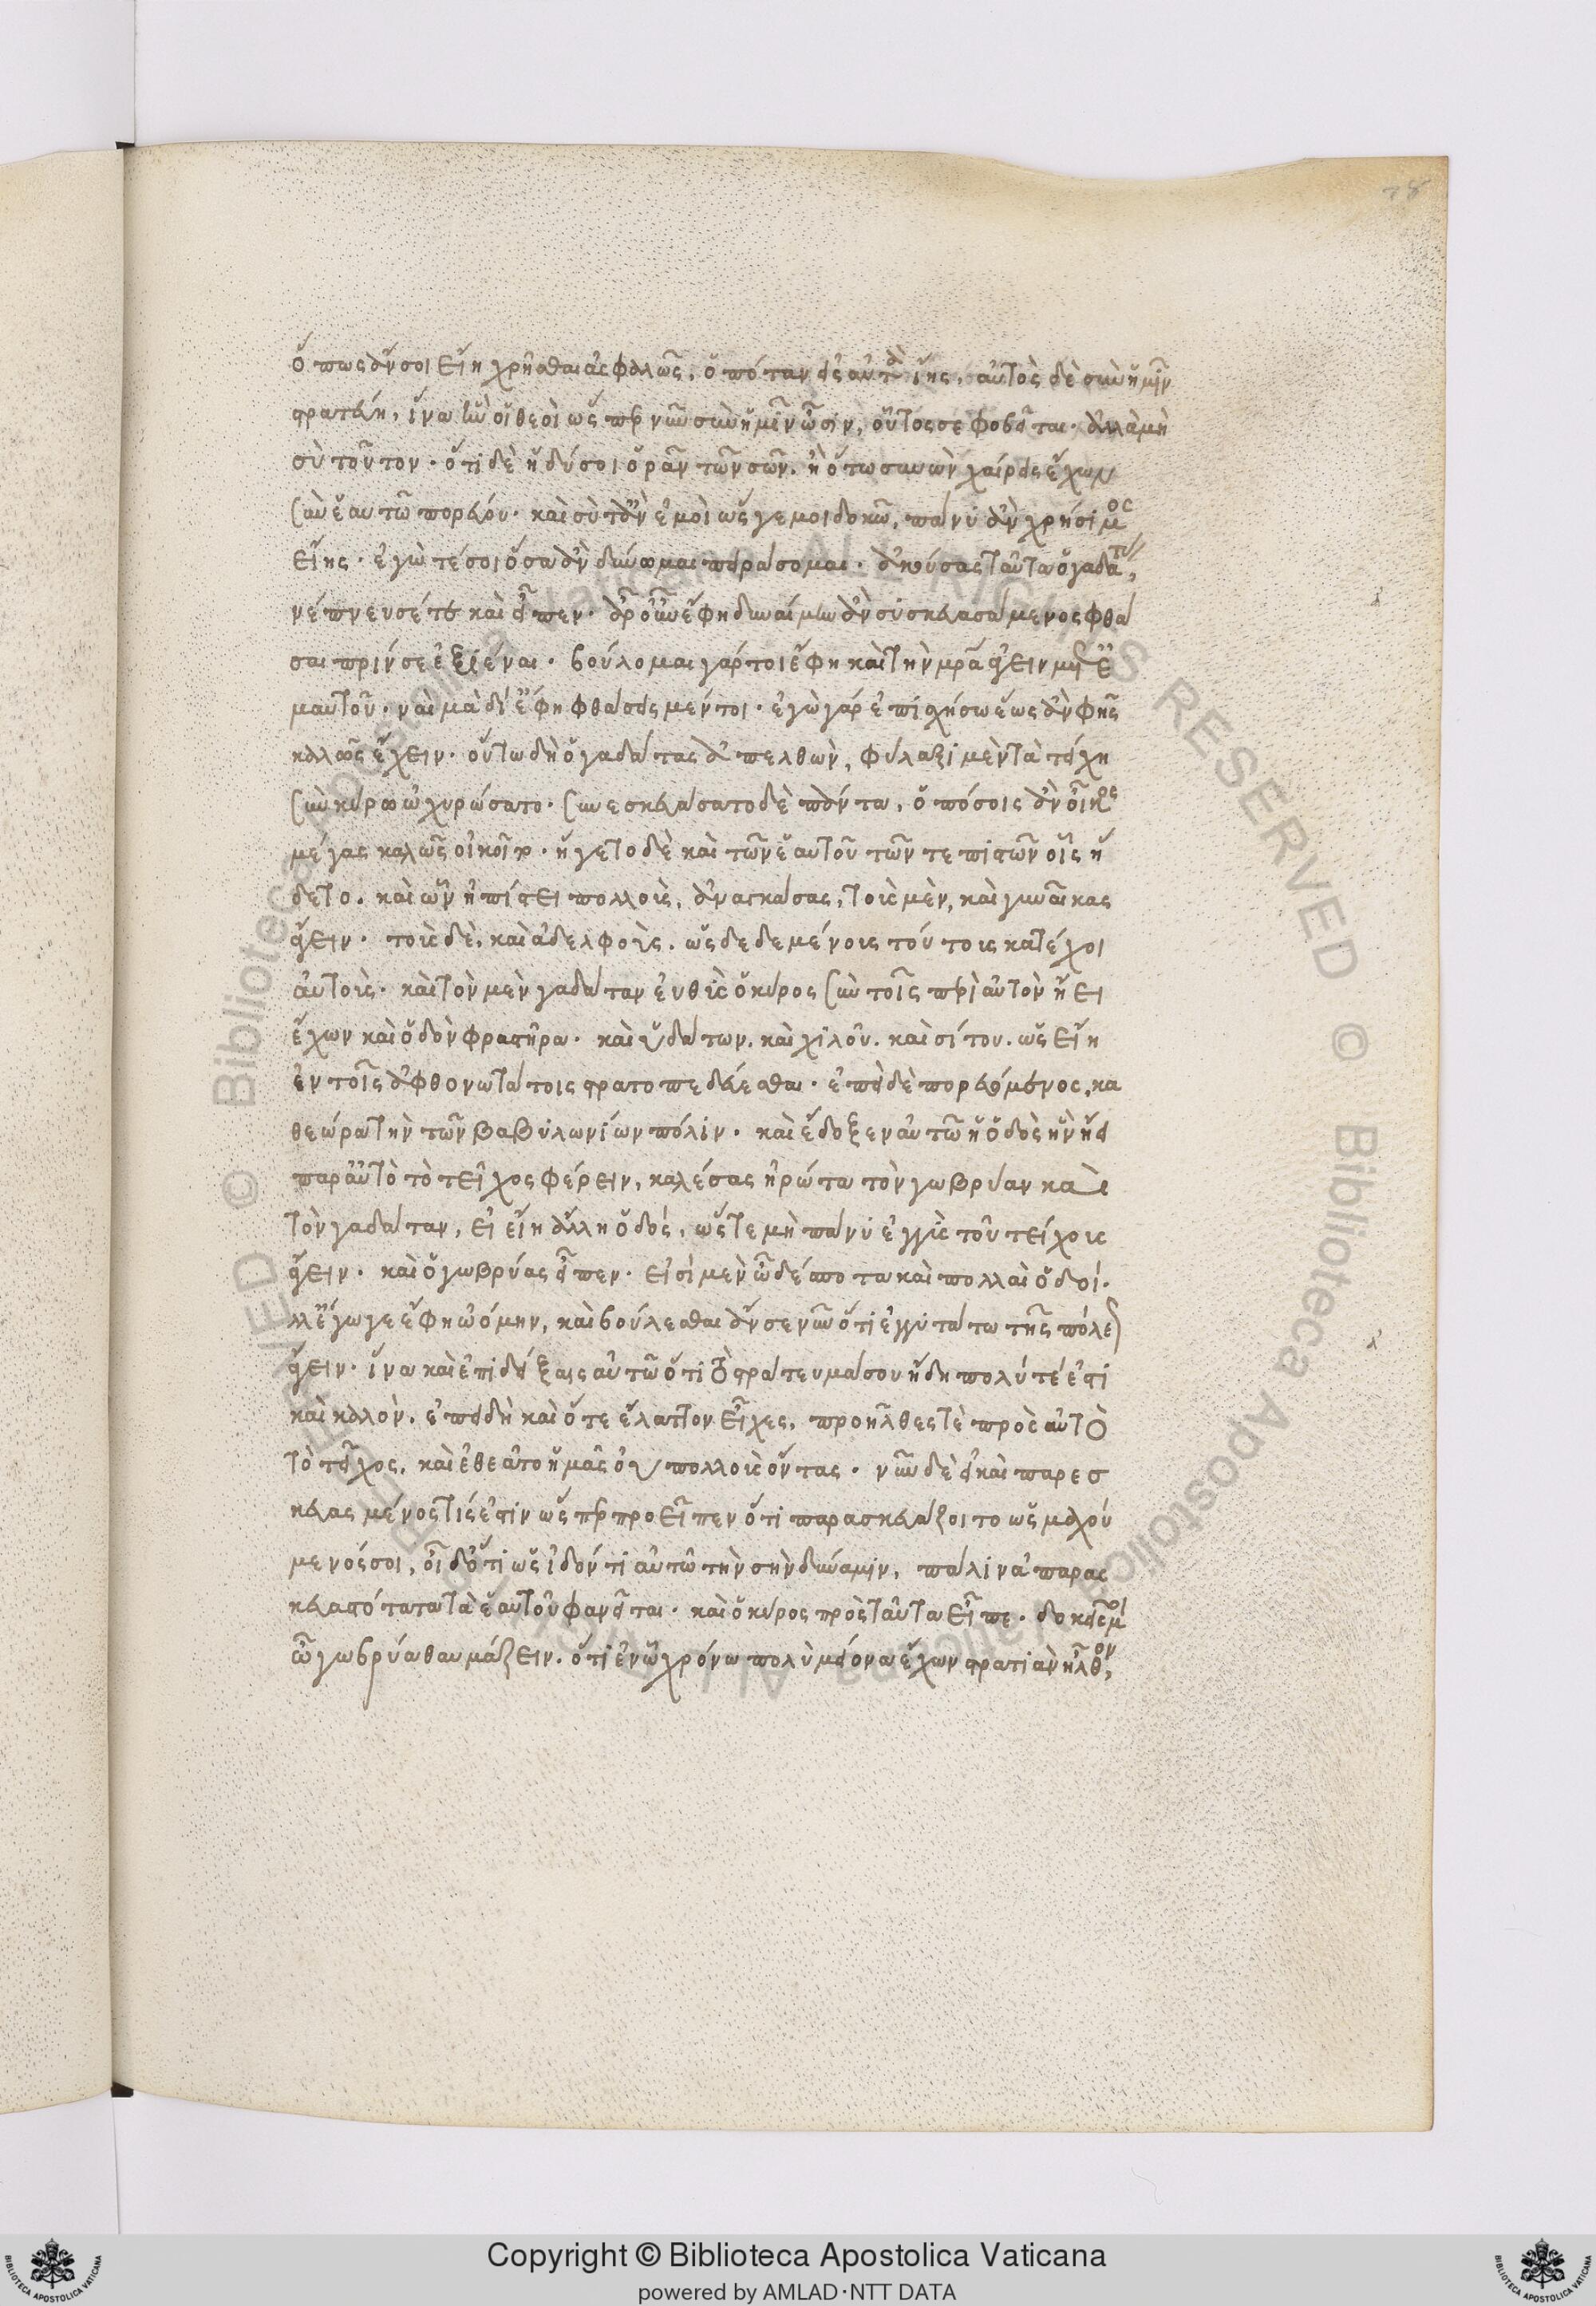 ὅπως ἄν σοι εἴη χρῆσθαι ἀσφαλῶς, ὁπόταν εἰς αὐτὰ ἴῃς, αὐτὸς δὲ σὺν ἡμῖν
στρατεύῃ, ἵνα ἢν οἱ θεοὶ ὥσπερ νῦν σὺν ἡμῖν ὦσιν, οὗτος σὲ φοβεῖται· ἀλλὰ μὴ
σὺ τοῦτον· ὅτι δὲ ἡδύ σοι ὁρᾶν τῶν σῶν. ἢ ὅτω συνὼν χαίρεις ἔχων
σὺν ἑαυτῶ πορεύου· καὶ σὺ τ' ἂν ἐμοὶ ὥς γέ μοι δοκῶ, πάνυ ἂν χρήσιμος
εἴης· ἐγώ τέ σοι ὅσα ἂν δύνωμαι πειράσομαι· ἀκούσας ταῦτα ὁ γαδάτας,
νέπνευσέ τε καὶ εἶπεν· ἆρ' οὖν ἔφη δυναίμην ἂν συσκευασάμενος φθά
σαι πρίν σε ἐξιέναι· βούλομαι γάρ τοι ἔφη καὶ τὴν μρα ἄγειν μετ' ἐ
μαυτοῦ· ναὶ μὰ δί' ἔφη φθάσεις μέντοι· ἐγὼ γὰρ ἐπισχήσω ἕως ἂν φῆς
καλῶς ἔχειν· οὕτω δὴ ὁ γαδάτας ἀπελθὼν, φύλαξι μὲν τὰ τείχη
σὺν κύρω ὠχυρώσατο· συνεσκευάσατο δὲ πάντα, ὁπόσοις ἂν οἶκος
μέγας καλῶς οἰκοῖτο· ἤγετο δὲ καὶ τῶν ἑαυτοῦ τῶν τε πιστῶν οἷς ἥ
δετο. καὶ ὧν ἠπίστει πολλοὺς, ἀναγκάσας, τοὺς μὲν, καὶ γυναῖκας
ἄγειν· τοὺς δὲ, καὶ ἀδελφοὺς. ὡς δεδεμένους τούτοις κατέχοι
αὐτούς· καὶ τὸν μὲν γαδάταν ἐυθὺς ὁ κύρος σὺν τοῖς περὶ αὐτὸν ἤει
ἔχων καὶ ὁδὸν φραστῆρα· καὶ ὑδάτων. καὶ χιλοῦ. καὶ σίτου. ὡς εἴη
ἐν τοῖς ἀφθονωτάτοις στρατοπεδεύεσθαι· ἐπεὶ δὲ πορευόμενος, κα
θεώρα τὴν τῶν βαβυλωνίων πόλιν· καὶ ἔδοξεν αὐτῶ ἡ ὁδὸς ἣν ἤει
παρ' αὐτὸ τὸ τεῖχος φέρειν, καλέσας ἠρώτα τὸν γωβρύαν καὶ
τὸν γαδάταν, εἰ εἴη ἄλλη ὁδός, ὥστε μὴ πάνυ ἐγγὺς τοῦ τείχους
ἄγειν· καὶ ὁ γωβρύας εἶπεν· εἰσὶ μὲν ὦ δέσποτα καὶ πολλαὶ ὁδοί·
ἀλλ' ἔγωγε ἔφη ὠόμην, καὶ βούλεσθαι ἄν σε νῦν ὅτι ἐγγύτατω τῆς πόλεως
ἄγειν· ἵνα καὶ ἐπιδείξαις αὐτῶ ὅτι τὸ στράτευμά σου ἤδη πολύ τέ ἐστι
καὶ καλὸν. ἐπειδὴ καὶ ὅτε ἔλαττον εἶχες, προσῆλθές τε πρὸς αὐτὸ
τὸ τεῖχος, καὶ ἐθεᾶτο ἡμᾶς οὐ πολλοὺς ὄντας· νῦν δὲ εἰ καὶ παρεσ
κευασμένος τίς ἐστιν ὥσπερ προεῖπεν ὅτι παρασκευάζοιτο ὡς μαχού
μενός σοι, οἶδ' ὅτι ὡς ἰδόντι αὐτῶ τὴν σὴν δύναμιν, πάλιν ἀπαρασ
κευαστότατα τὰ ἑαυτοῦ φανεῖται· καὶ ὁ κύρος πρὸς ταῦτα εἶπε· δοκεῖς μοι
ὦ γωβρύα θαυμάζειν. ὅτι ἐν ὧ χρόνω πολὺ μείονα ἔχων στρατιὰν ἦλθον,